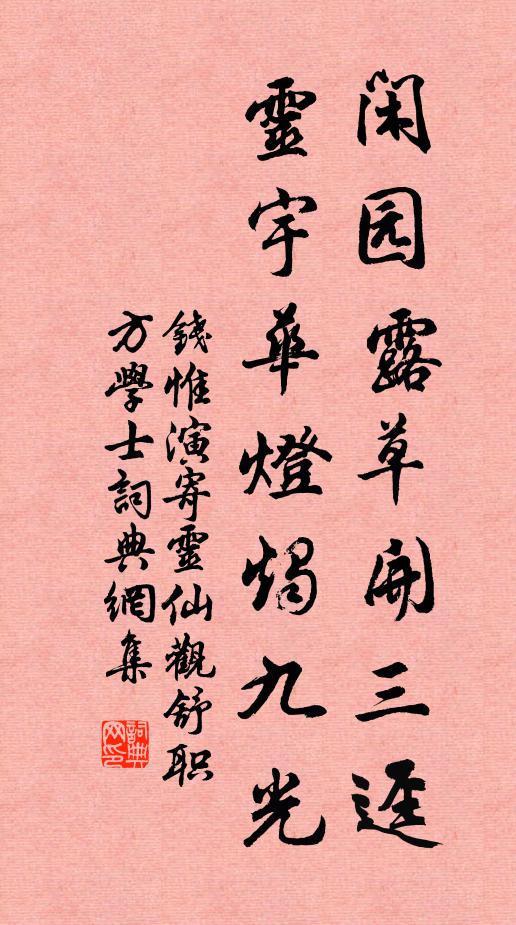 闲园露草開三逕
靈宇華燈燭九光
錢惟演寄靈仙觀舒职
方學士詞典網集
詞典网印